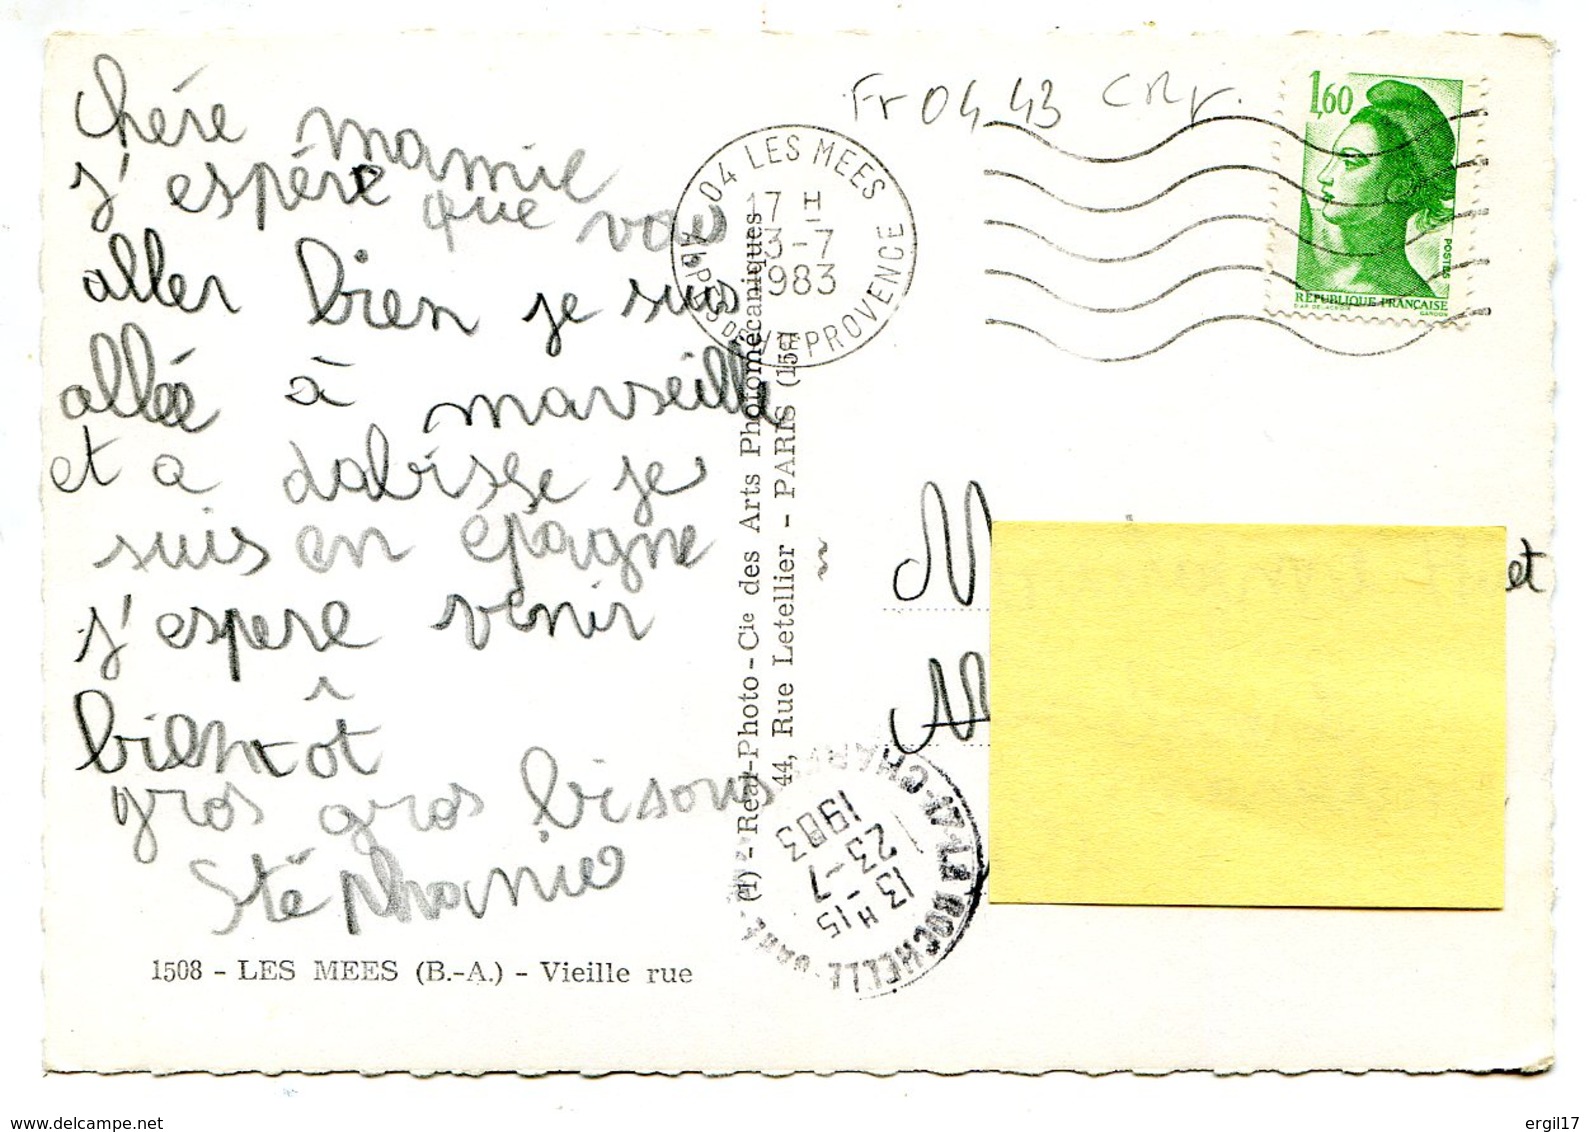 chére mamie
j'espére que vous
aller bien je suis
allée à marseille
et a dabisse je
suis en épagne
j'espere venir
bientôt
gros gros bisous
Stéphanie
1508 - LES MEES (B.-A.) - Vieille rue
(1) - Réal-Photo-Cie des Arts Photomécaniques
44, Rue Letellier - PARIS (15e)
Fr 04 43
04 LES MEES
17 H
3-7
1983
ALPES DE HTE PROVENCE
1,60
POSTES
RÉPUBLIQUE FRANÇAISE
D'AP. DELACROIX
GANDON
M
et
M
17-LA ROCHELLE-GARE
13 H 15
23-7
1983
www.delcampe.net
ergil17